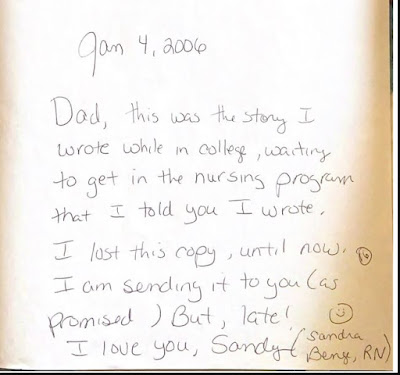 Jan 4, 2006
Dad, this was the story I
wrote while in college, waiting
to get in the nursing program
that I told you I wrote.
I lost this copy, until now.
I am sending it to you (as
promised) But, late!
I love you, Sandy (Sandra
RN)